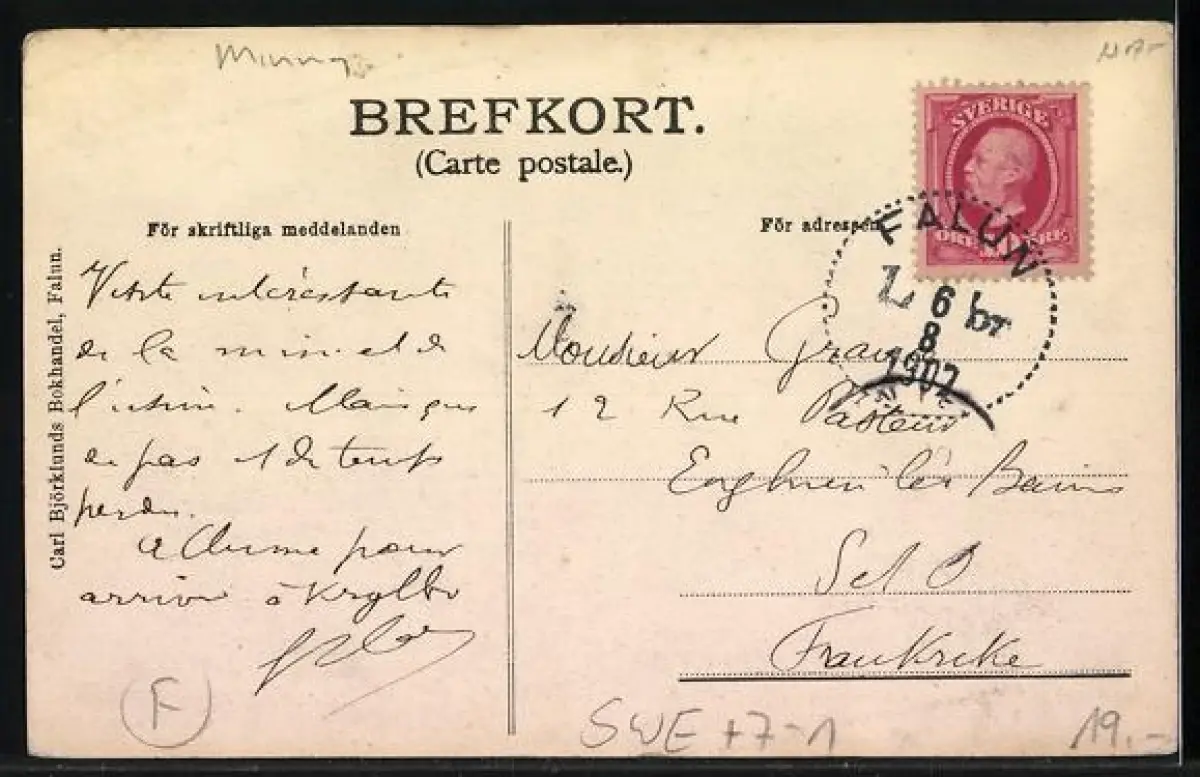 BREFKORT.
(Carte postale.)
För skriftliga meddelanden
För adressen
SVERIGE
FALUN
6
8
1907
Carl Björklunds Bokhandel, Falun.
Visite intéressante
de la mine et de
l'usine. Mais que
de pas et de temps
perdu.
pour
arriver à Krylbo
Monsieur
12 Rue Pasteur
Enghien les Bains
S et O
Frankrike
F
SWE +7-1
19.-